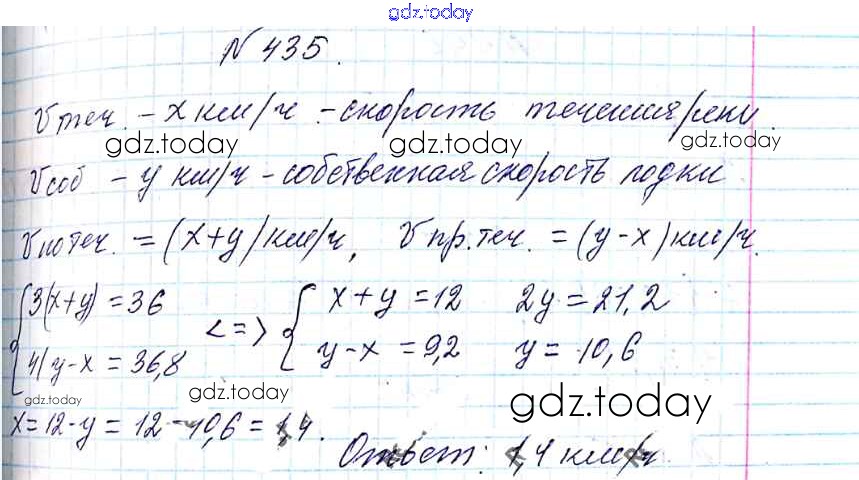 gdz.today
N 435.
Vтеч. - x км/ч - скорость течения реки.
gdz.today gdz.today gdz.today
Vсоб - y км/ч - собственная скорость лодки
Vпо теч. = (x+y) км/ч, Vпр.теч. = (y-x) км/ч.
{ 3(x+y) = 36 <=> { x+y = 12 2y = 21,2
4(y-x = 36,8 y-x = 9,2 y = 10,6
gdz.today gdz.today gdz.today
x = 12-y = 12-10,6 = 1,4.
Ответ: 1,4 км/ч